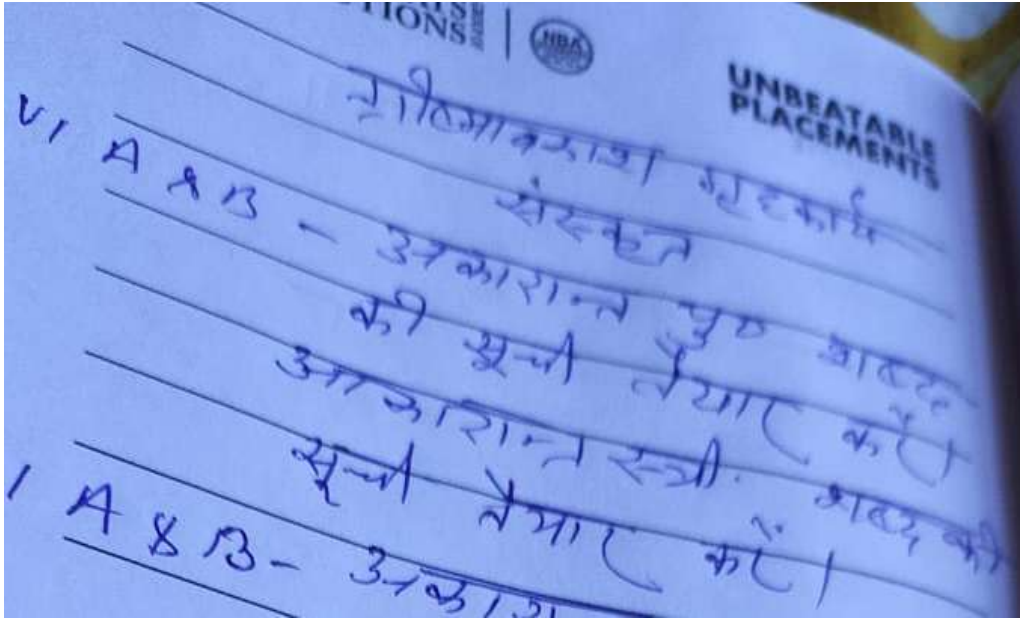 TIONS
NBA
UNBEATABLE
PLACEMENTS
ग्रीष्मावकाश गृहकार्य
संस्कृत
VI A & B - अकारान्त पु० शब्द
की सूची तैयार करें।
आकारान्त स्त्री. शब्द की
सूची तैयार करें।
I A & B-